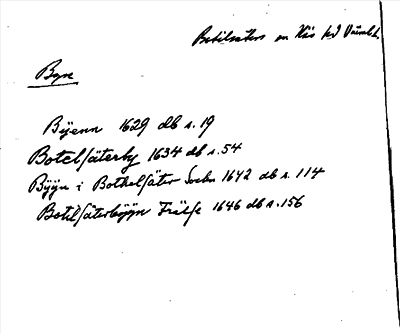 Botilsäters sn Näs hd Värml.
Byn
Byenn 1629 db s. 19
Botelsäterby 1634 db s. 54
Byyn i Bothelsäter Sockn 1642 db s. 114
Botilsäterbyyn Frälse 1646 db s. 156